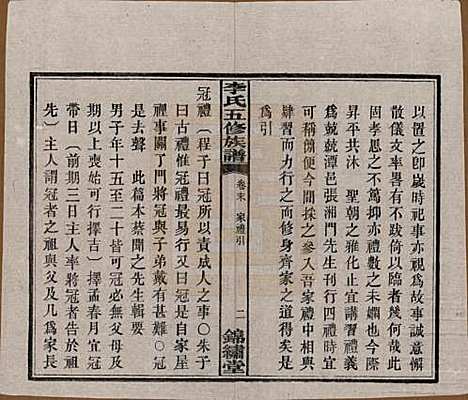 以置之卽歲時祀事亦視爲故事誠意懈
散儀文率畧不跛倚以臨者幾何哉此
固孝思之不篤抑亦禮數之未嫺也方今
昇平共沐　聖朝之雅化正宜講習禮義
爲兢兢茲譚邑張湘門先生刊行四禮時宜
可稱簡便今間採之參入吾家禮中相與
肄習而力行之而修身齊家之道得矣是
爲引
李氏五修族譜
卷末　家禮引
二
錦繡堂
冠禮（程子曰冠所以責成人之事○朱子
曰古禮惟冠禮最易行又曰冠是自家屋
裡事關了門將冠與子弟戴有甚難○冠
是去聲　此篇本蔡聞之先生輯要
男子年十五至二十皆可冠必無父母及
期以上喪始可行擇吉）擇孟春月宜冠
帶日（前期三日主人率將冠者告於祖
先）主人謂冠者之祖與父及凡爲家長